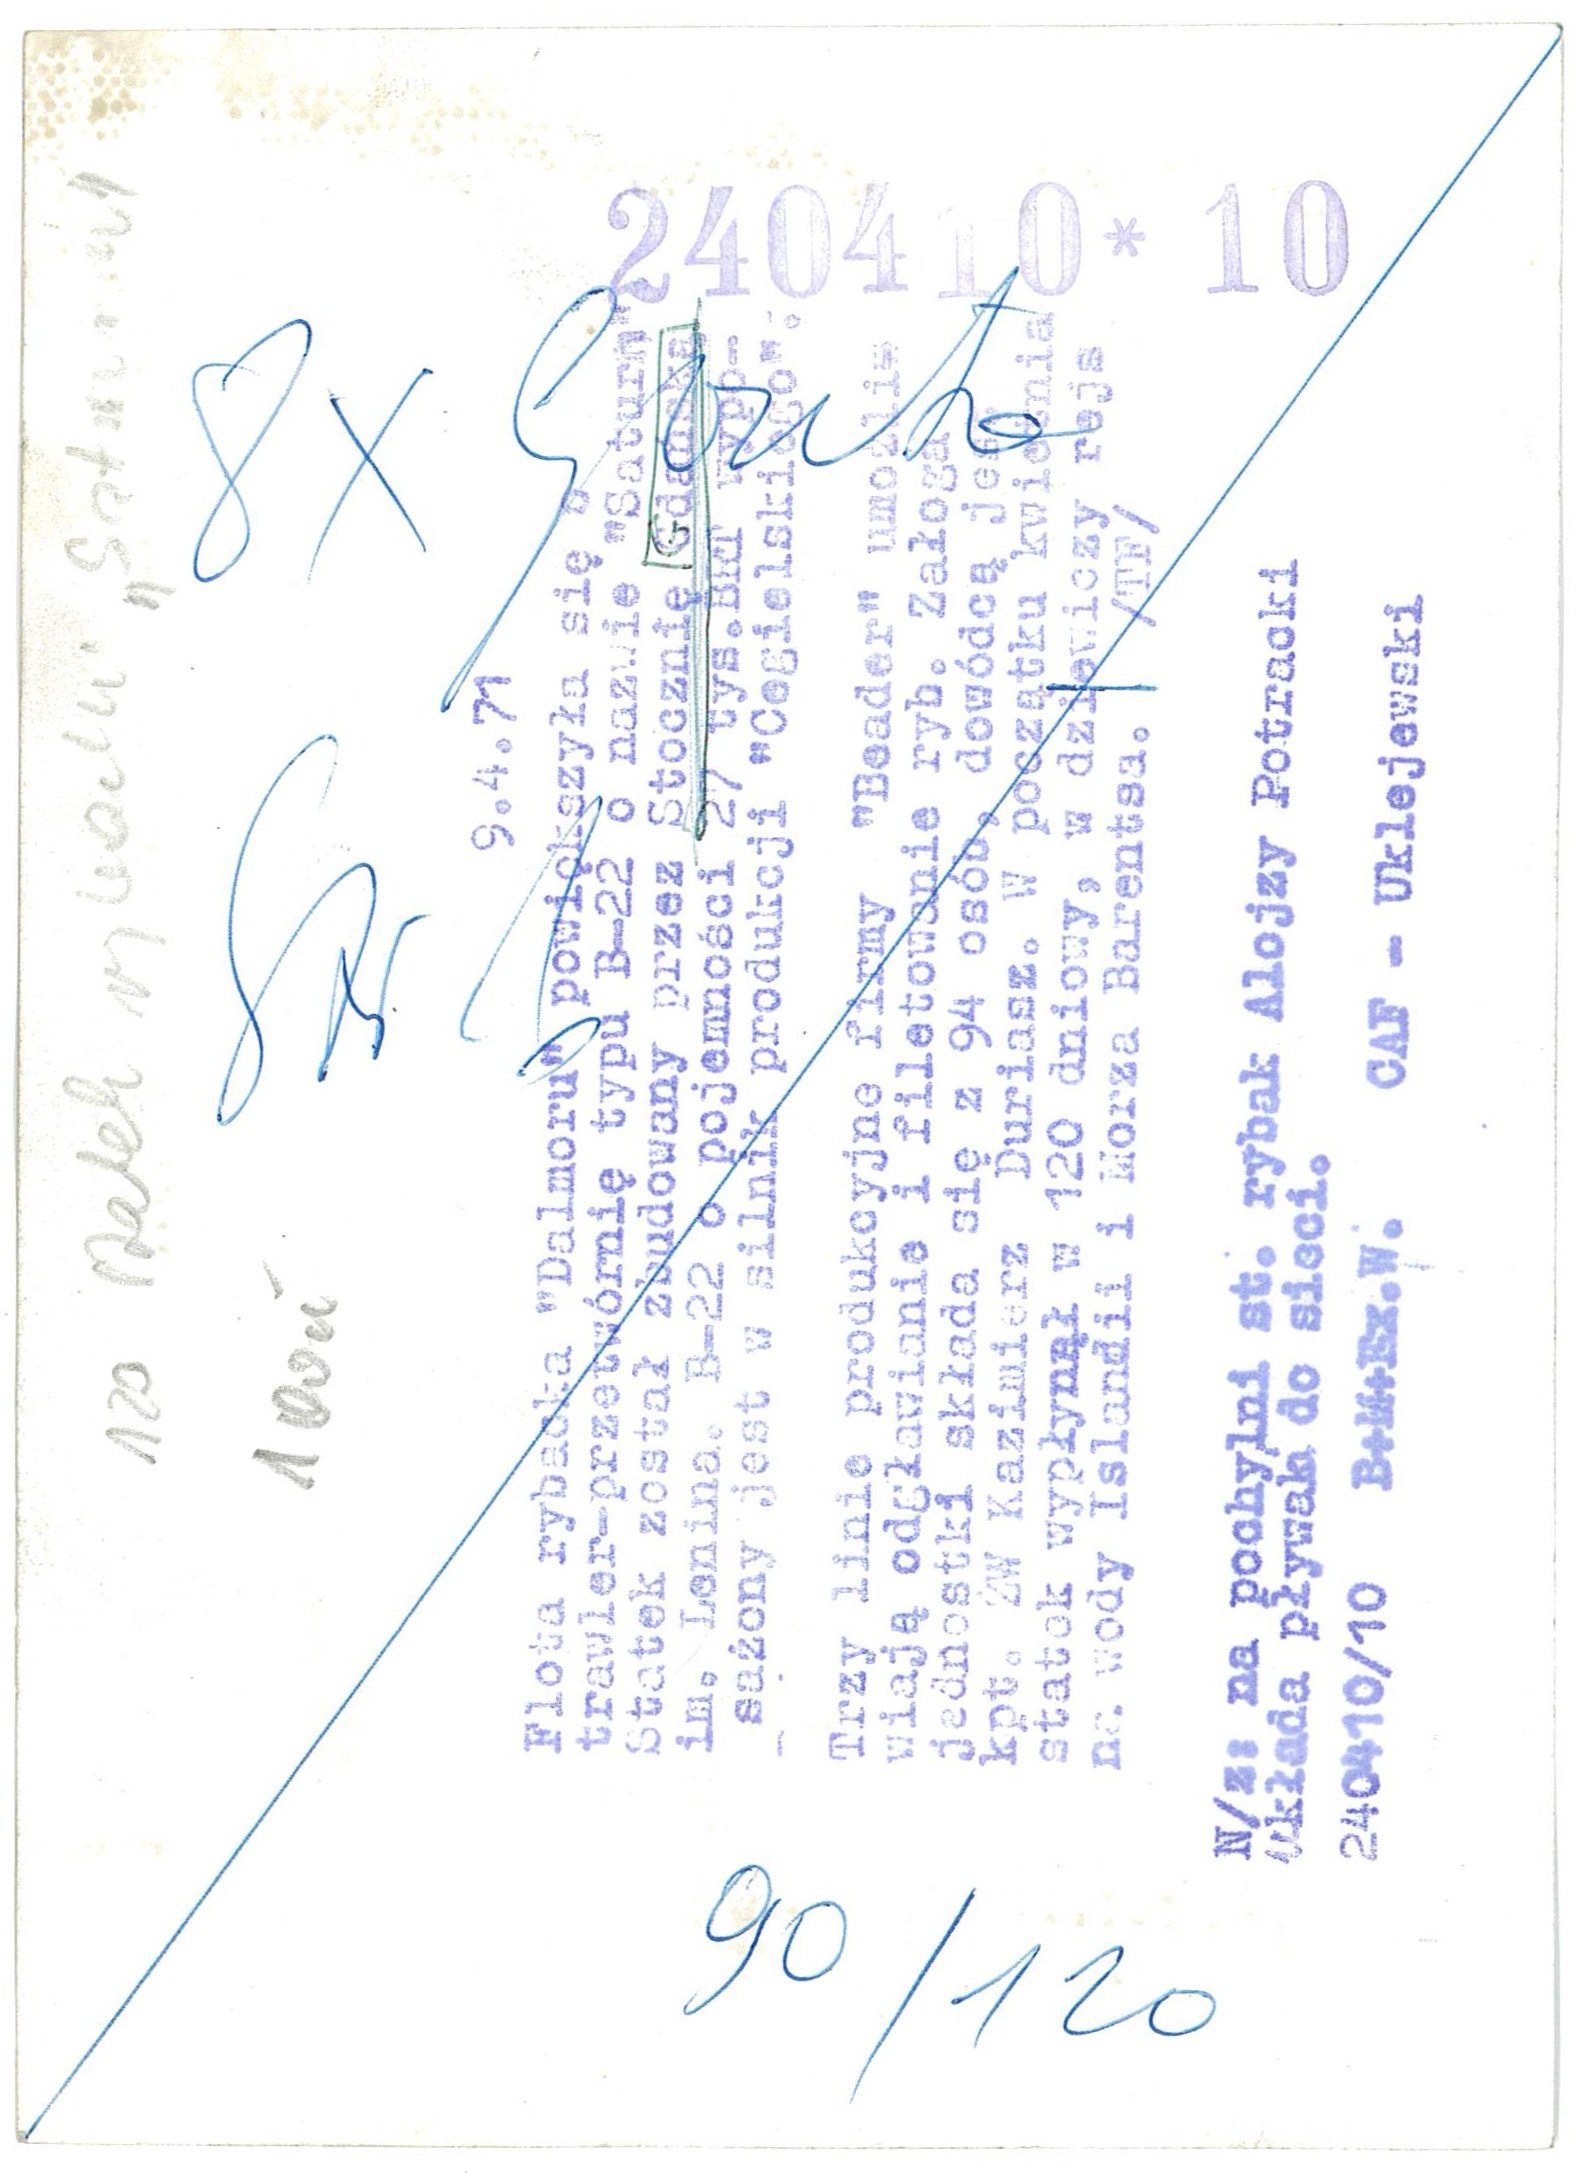 240410* 10
9.4.71
Flota rybacka "Dalmoru" powiększyła się o
trawler-przetwórnię typu B-22 o nazwie "Saturn"
Statek został zbudowany przez Stocznię Gdańską
im. Lenina. B-22 o pojemności 27 tys. BRT wypo-
sażony jest w silnik produkcji "Cegielskiego".
Trzy linie produkcyjne firmy "Beader" umożli=
wiają odgławianie i filetowanie ryb. Załoga
jednostki składa się z 94 osób, dowódcą jest
kpt. ŻW Kazimierz Duriasz. W początku kwietnia
statek wypłynął w 120 dniowy, w dziewiczy rejs
na wody Islandii i Morza Barentsa. /TF/
N/z: na pochylni st. rybak Alojzy Potracki
układa pływak do sieci.
240410/10 B+M+Ez.W. CAF - Uklejewski
120
"Saturn"
8 X
90/120